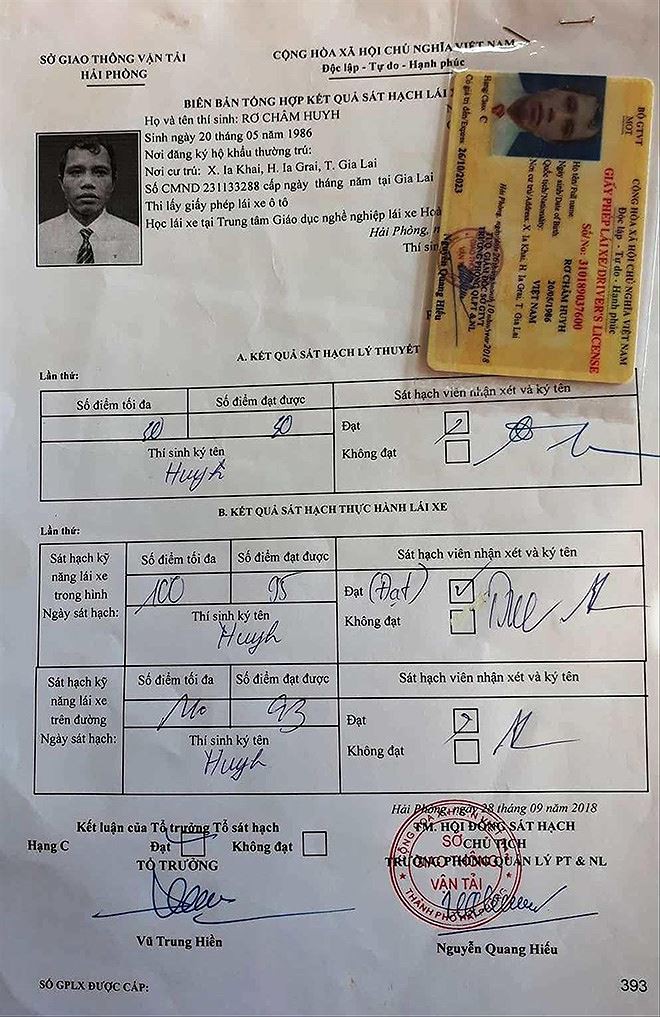 SỞ GIAO THÔNG VẬN TẢI
HẢI PHÒNG
CỘNG HÒA XÃ HỘI CHỦ NGHĨA VIỆT NAM
Độc lập - Tự do - Hạnh phúc
BIÊN BẢN TỔNG HỢP KẾT QUẢ SÁT HẠCH LÁI
Họ và tên thí sinh: RƠ CHÂM HUYH
Sinh ngày 20 tháng 05 năm 1986
Nơi đăng ký hộ khẩu thường trú:
Nơi cư trú: X. Ia Khai, H. Ia Grai, T. Gia Lai
Số CMND 231133288 cấp ngày tháng năm tại Gia Lai
Thi lấy giấy phép lái xe ô tô
Học lái xe tại Trung tâm Giáo dục nghề nghiệp lái xe Hoà
Hải Phòng,
Thí sin
BỘ GTVT
MOT
CỘNG HÒA XÃ HỘI CHỦ NGHĨA VIỆT NAM
Độc lập - Tự do - Hạnh phúc
GIẤY PHÉP LÁI XE/DRIVER'S LICENSE
Số/No: 310189037600
Họ tên/Full name: RƠ CHÂM HUYH
Ngày sinh/Date of Birth: 20/05/1986
Quốc tịch/Nationality: VIỆT NAM
Nơi cư trú/Address: X. Ia Khai, H. Ia Grai, T. Gia Lai
Hải Phòng, ngày/date 26 tháng/month 10 năm/year 2018
TUQ. GIÁM ĐỐC SỞ GTVT
TRƯỞNG PHÒNG QLPT & NL
Nguyễn Quang Hiếu
Hạng/Class: C
Có giá trị đến/Expires: 26/10/2023
A. KẾT QUẢ SÁT HẠCH LÝ THUYẾT
Lần thứ:
Số điểm tối đa
Số điểm đạt được
Sát hạch viên nhận xét và ký tên
30
30
Đạt
Không đạt
Thí sinh ký tên
Huyh
B. KẾT QUẢ SÁT HẠCH THỰC HÀNH LÁI XE
Lần thứ:
Sát hạch kỹ năng lái xe trong hình
Ngày sát hạch:
Số điểm tối đa
Số điểm đạt được
Sát hạch viên nhận xét và ký tên
100
95
Đạt (Đạt)
Không đạt
Thí sinh ký tên
Huyh
Sát hạch kỹ năng lái xe trên đường
Ngày sát hạch:
Số điểm tối đa
Số điểm đạt được
Sát hạch viên nhận xét và ký tên
93
Đạt
Không đạt
Thí sinh ký tên
Huyh
Hải Phòng, ngày 28 tháng 09 năm 2018
Kết luận của Tổ trưởng Tổ sát hạch
TM. HỘI ĐỒNG SÁT HẠCH
Hạng C
Đạt
Không đạt
CHỦ TỊCH
TỔ TRƯỞNG
TRƯỞNG PHÒNG QUẢN LÝ PT & NL
SỞ
GIAO THÔNG
VẬN TẢI
Vũ Trung Hiền
Nguyễn Quang Hiếu
SỐ GPLX ĐƯỢC CẤP:
393